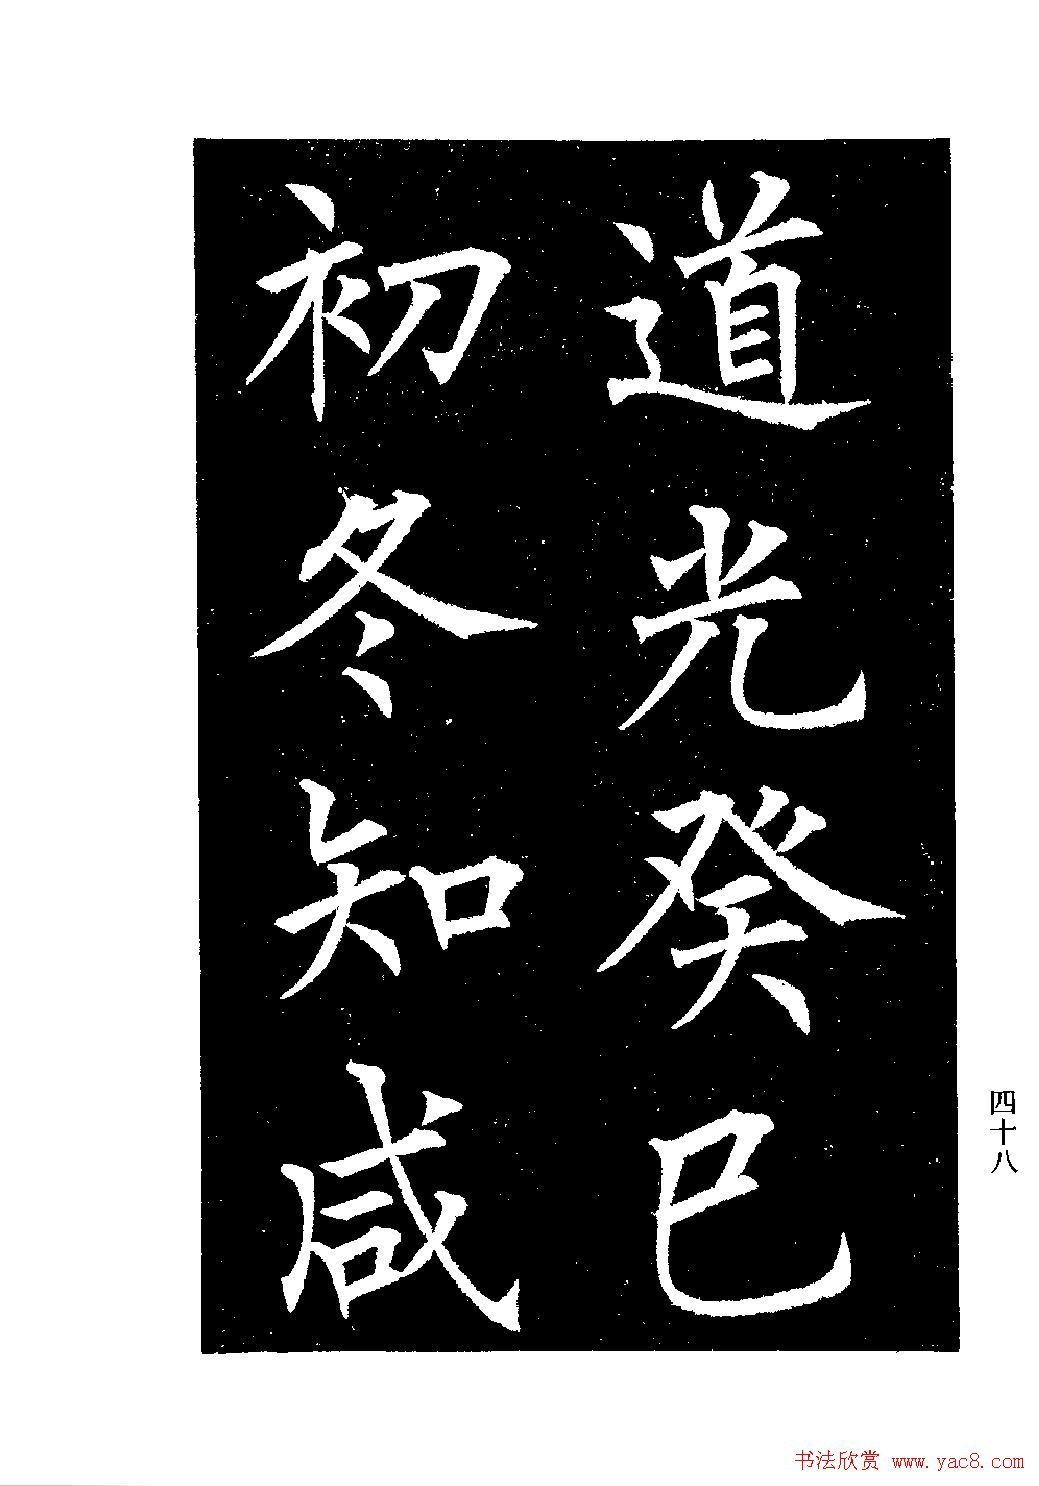 道光癸巳
初冬知咸
四十八
书法欣赏 www.yac8.com